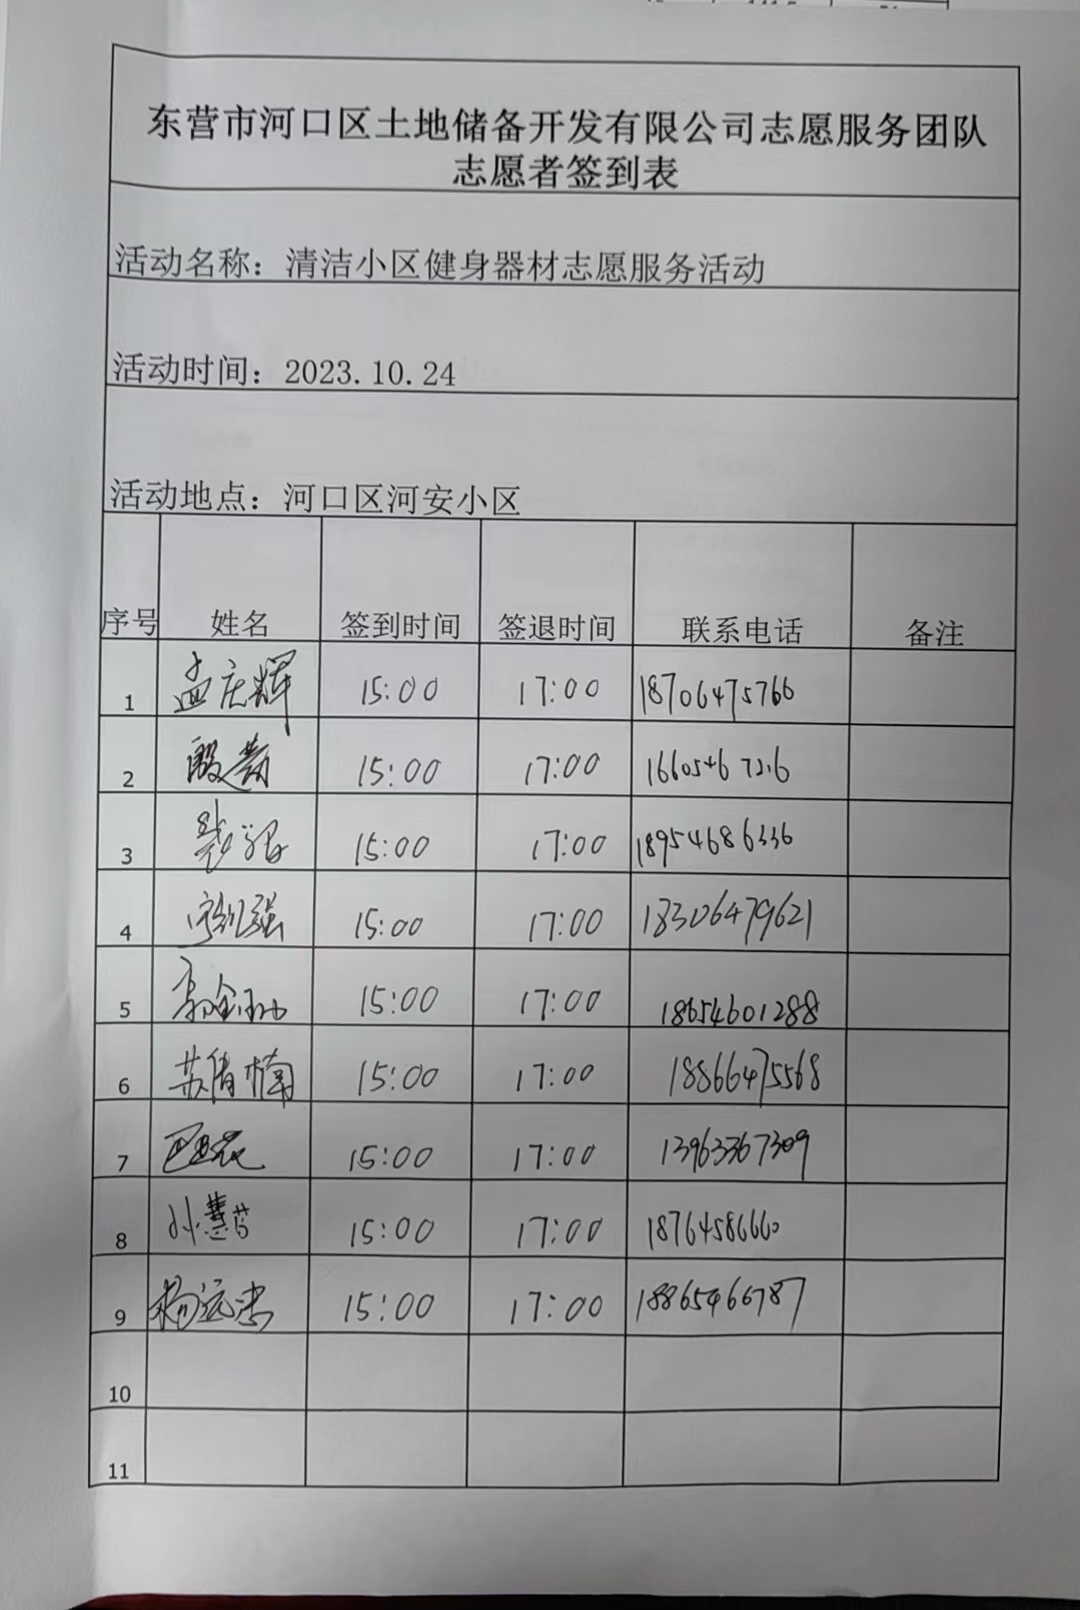 东营市河口区土地储备开发有限公司志愿服务团队
志愿者签到表
活动名称：清洁小区健身器材志愿服务活动
活动时间：2023.10.24
活动地点：河口区河安小区
序号 姓名 签到时间 签退时间 联系电话 备注
1 孟庆辉 15:00 17:00 18706475766
2 15:00 17:00 16605467216
3 15:00 17:00 18954686336
4 15:00 17:00 18306479621
5 15:00 17:00 18654601288
6 苏倩楠 15:00 17:00 18866475568
7 15:00 17:00 13963367309
8 孙慧 15:00 17:00 18764586660
9 杨远忠 15:00 17:00 18865466787
10
11